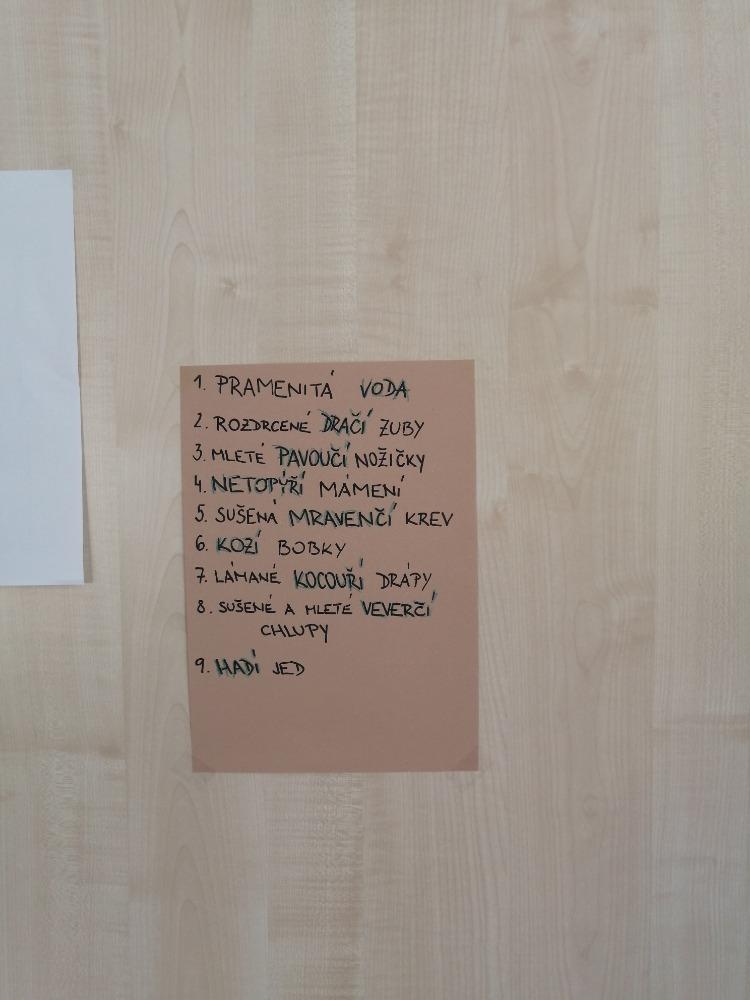 1. PRAMENITÁ VODA
2. ROZDRCENÉ DRAČÍ ZUBY
3. MLETÉ PAVOUČÍ NOŽIČKY
4. NETOPÝŘÍ MÁMENÍ
5. SUŠENÁ MRAVENČÍ KREV
6. KOZÍ BOBKY
7. LÁMANÉ KOCOUŘÍ DRÁPY
8. SUŠENÉ A MLETÉ VEVERČÍ
CHLUPY
9. HADÍ JED